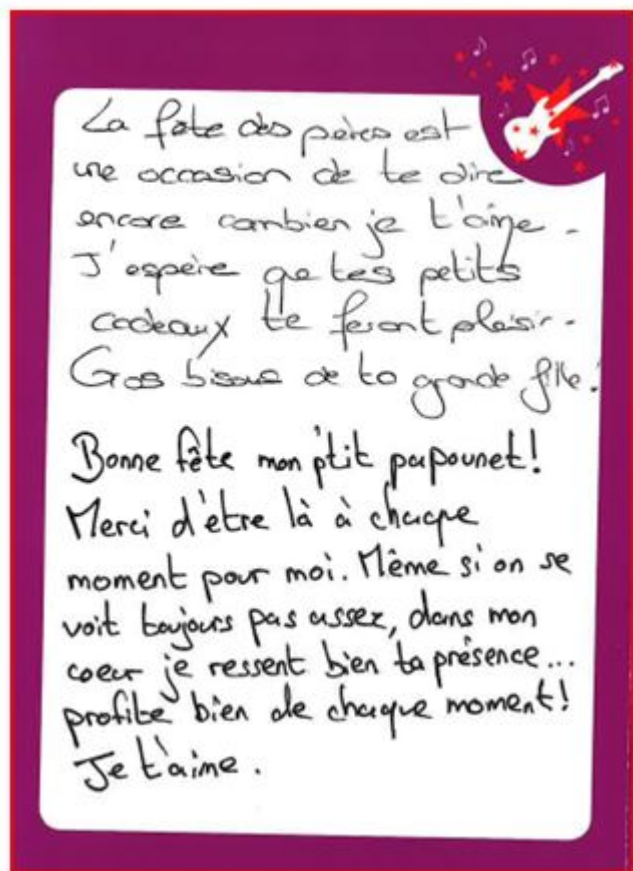 La fête des pères est
une occasion de te dire
encore combien je t'aime.
J'espère que tes petits
cadeaux te feront plaisir.
Gros bisous de ta grande fille!
Bonne fête mon p'tit papounet!
Merci d'être là à chaque
moment pour moi. Même si on se
voit toujours pas assez, dans mon
coeur je ressent bien ta présence...
profite bien de chaque moment!
Je t'aime.